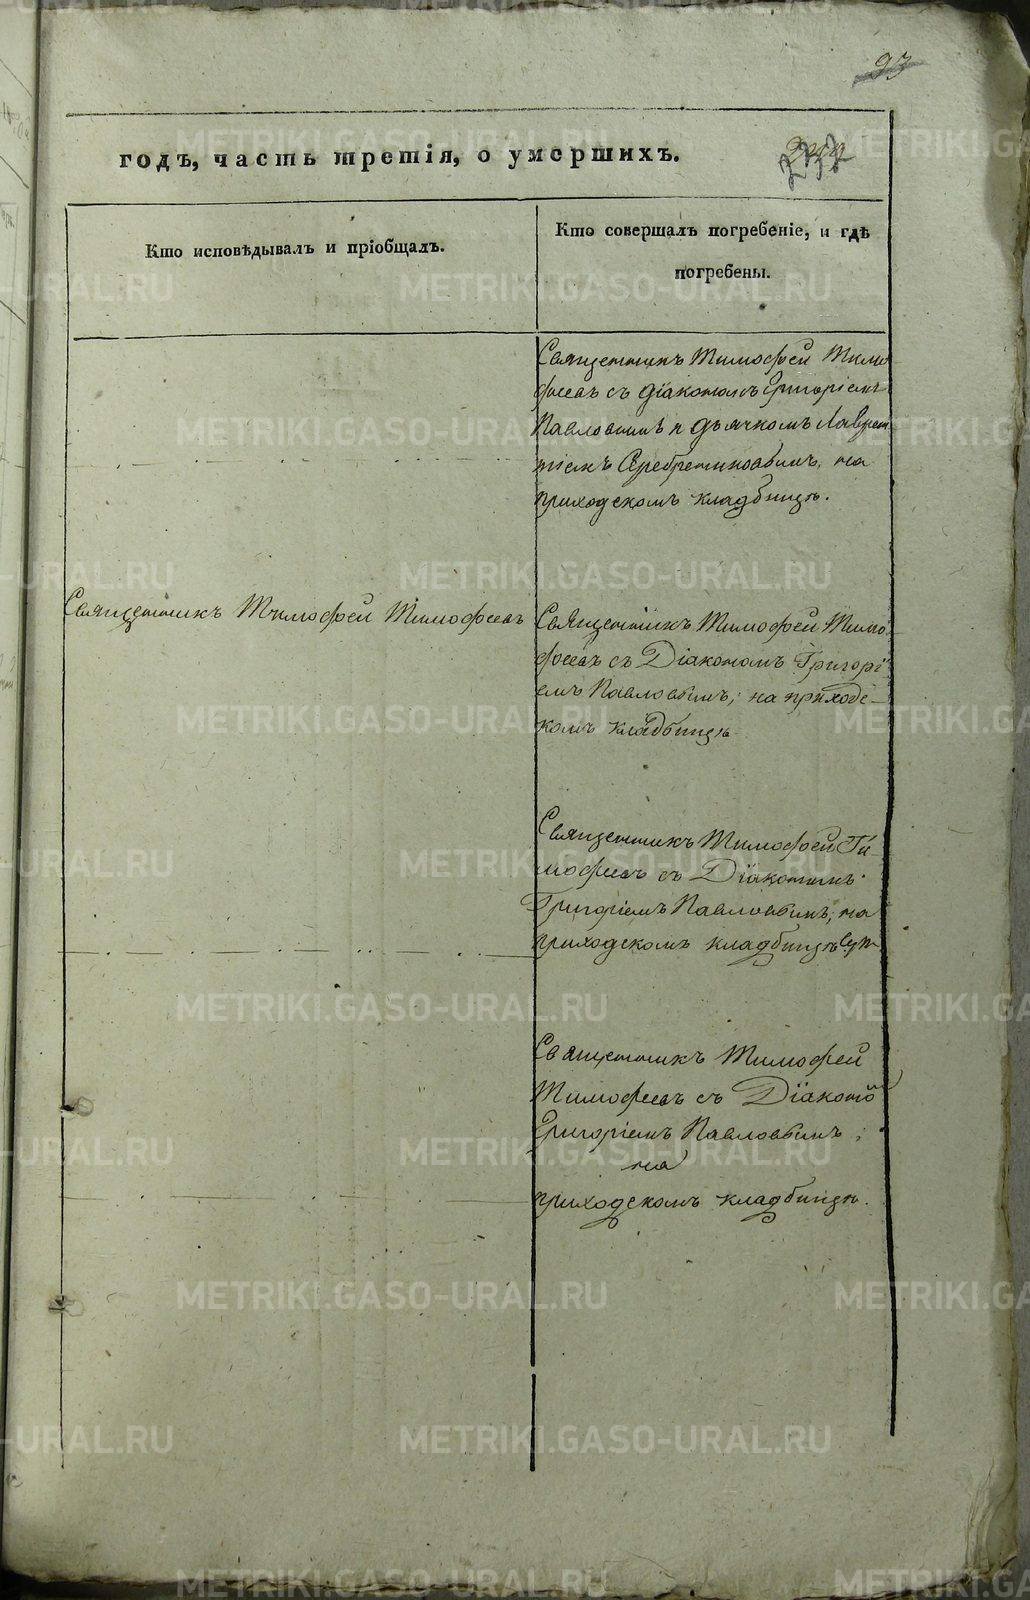 93
годъ, часть третія, о умершихъ.
Кто исповѣдывалъ и пріобщалъ.
Кто совершалъ погребеніе, и гдѣ
погребены.
Священникъ Тимофей Тимо
феевъ съ Діакономъ Григоріемъ
Павловымъ и дьячкомъ Лаврен
тіемъ Серебрениковымъ, на
приходскомъ кладбищѣ.
Священникъ Тимофей Тимофеевъ
Священникъ Тимофей Тимо
феевъ съ Діакономъ Григорі
емъ Павловымъ; на приходс-
комъ кладбищѣ
Священникъ Тимофей Ти-
мофеевъ съ Діакономъ
Григоріемъ Павловымъ, на
приходскомъ кладбищѣ
Священникъ Тимофей
Тимофеевъ съ Діаконо
Григоріемъ Павловымъ;
на
приходскомъ кладбищѣ.
METRIKI.GASO-URAL.RU